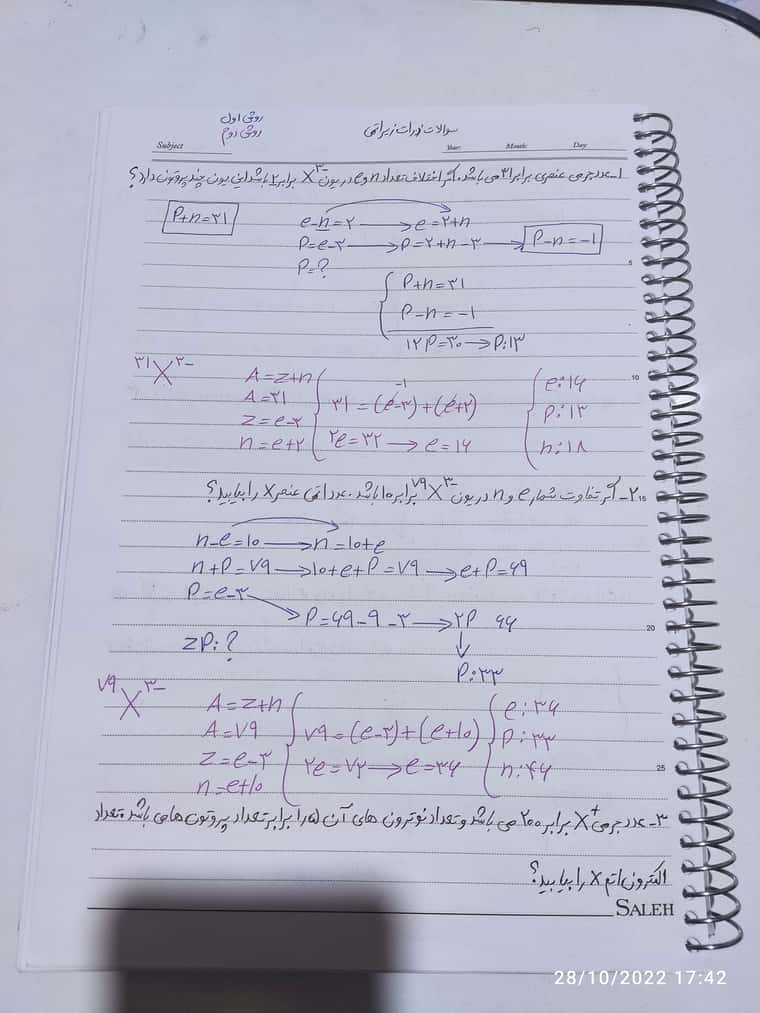 روش اول
روش دوم
سوالات ذرات زیراتمی
Subject Year: Month: Day
۱- عدد جرمی عنصری برابر ۳۱ می باشد. اگر اختلاف تعداد n و e در یون X³⁻ برابر ۲ باشد این یون چند پروتون دارد؟
P+n=۳۱
e-n=۲ → e=۲+n
P=e-۳ → P=۲+n-۳ → P-n=-۱
P=?
5
P+n=۳۱
P-n=-۱
۱۲P=۳۰ → P:۱۳
³¹X³⁻
10
A=z+n
A=۳۱
z=e-۳
n=e+۲
۳۱=(e-۳)+(e+۲)
-۱
۲e=۳۲ → e=۱۶
e:۱۶
P:۱۳
n:۱۸
15
۲- اگر تفاوت شمار e و n در یون ⁷⁹X³⁻ برابر ۱۰ باشد. عدد اتمی عنصر X را بیابید؟
n-e=۱۰ → n=۱۰+e
n+P=۷۹ → ۱۰+e+P=۷۹ → e+P=۶۹
P=e-۳
P=۶۹-۹-۳ → ۲P ۶۶
20
zP:?
P:۳۳
⁷⁹X³⁻
A=z+n
A=۷۹
z=e-۳
n=e+۱۰
۷۹=(e-۳)+(e+۱۰)
۲e=۷۲ → e=۳۶
e:۳۶
P:۳۳
n:۴۶
25
۳- عدد جرمی X⁺ برابر ۲۰۰ می باشد و تعداد نوترون های آن ۱،۵ برابر تعداد پروتون ها می باشد. تعداد
الکترون اتم X را بیابید؟
SALEH
28/10/2022 17:42